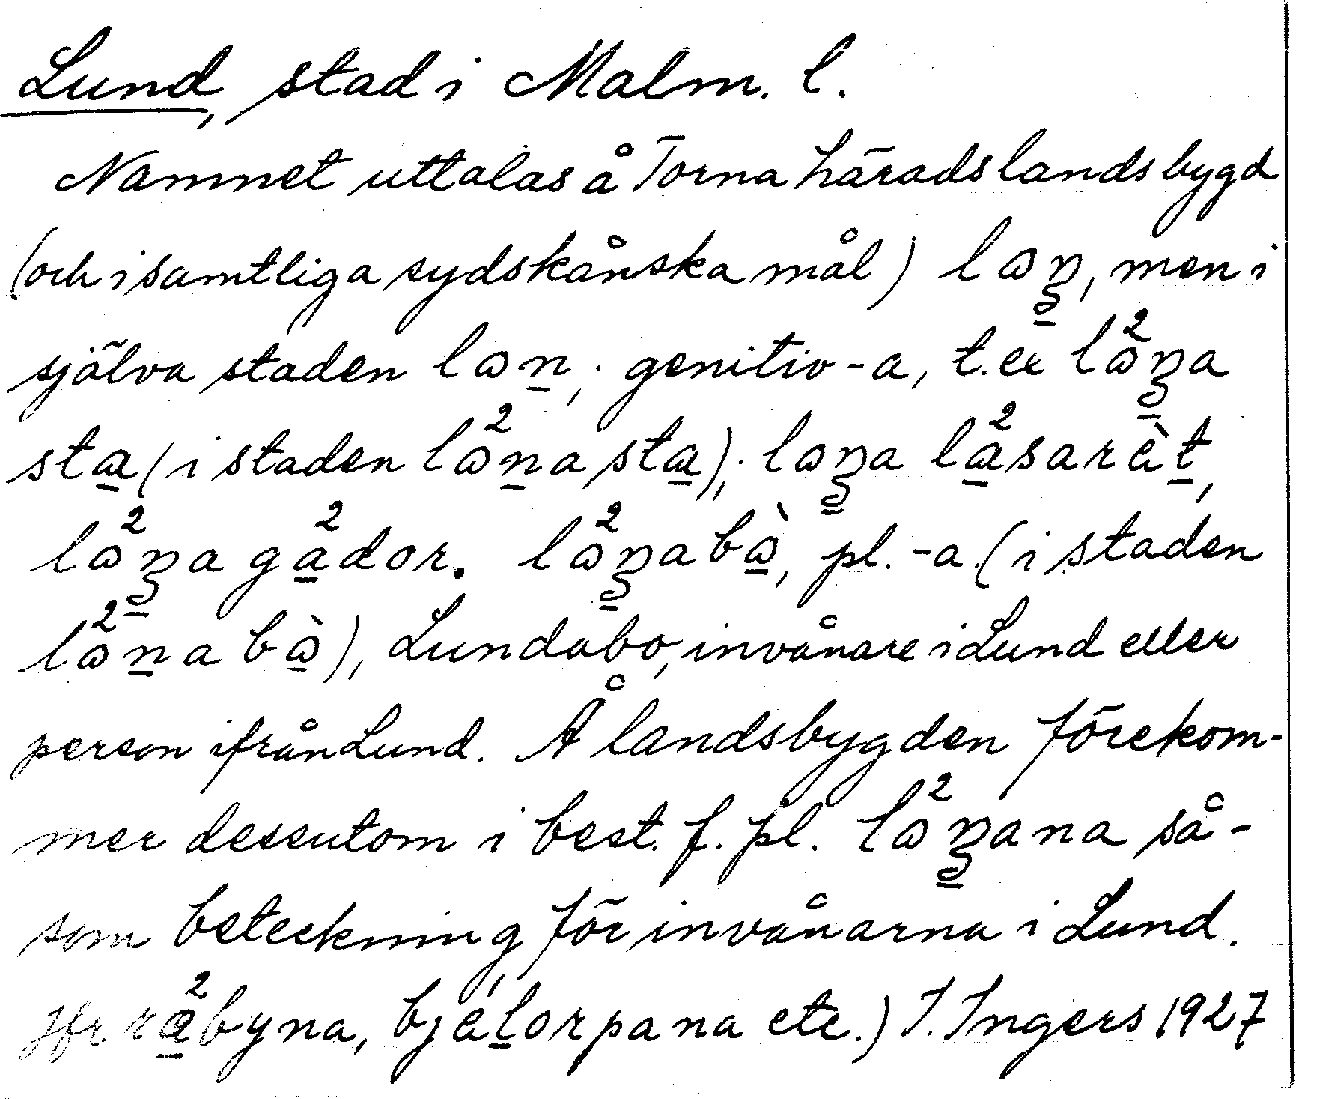 Lund, stad i Malm. l.
Namnet uttalas å Torna härads landsbygd
(och i samtliga sydskånska mål) lɷn̠, men i
själva staden lɷn̠; genitiv -a, t.ex lɷ̀²n̠a
sta̠ (i staden lɷ̀²n̠a sta̠); lɷn̠a la̠²sarèt̠,
lɷ²n̠a ga̠²dor. lɷ²n̠abɷ̠̀, pl. -a (i staden
lɷ²n̠abɷ̠̀), Lundabo, invånare i Lund eller
person ifrån Lund. Å landsbygden förekom-
mer dessutom i best. f. pl. lɷ²n̠ana så-
som beteckning för invånarna i Lund.
Jfr ra̠²byna, bjæ̀l̠orpana etc.) I. Ingers 1927